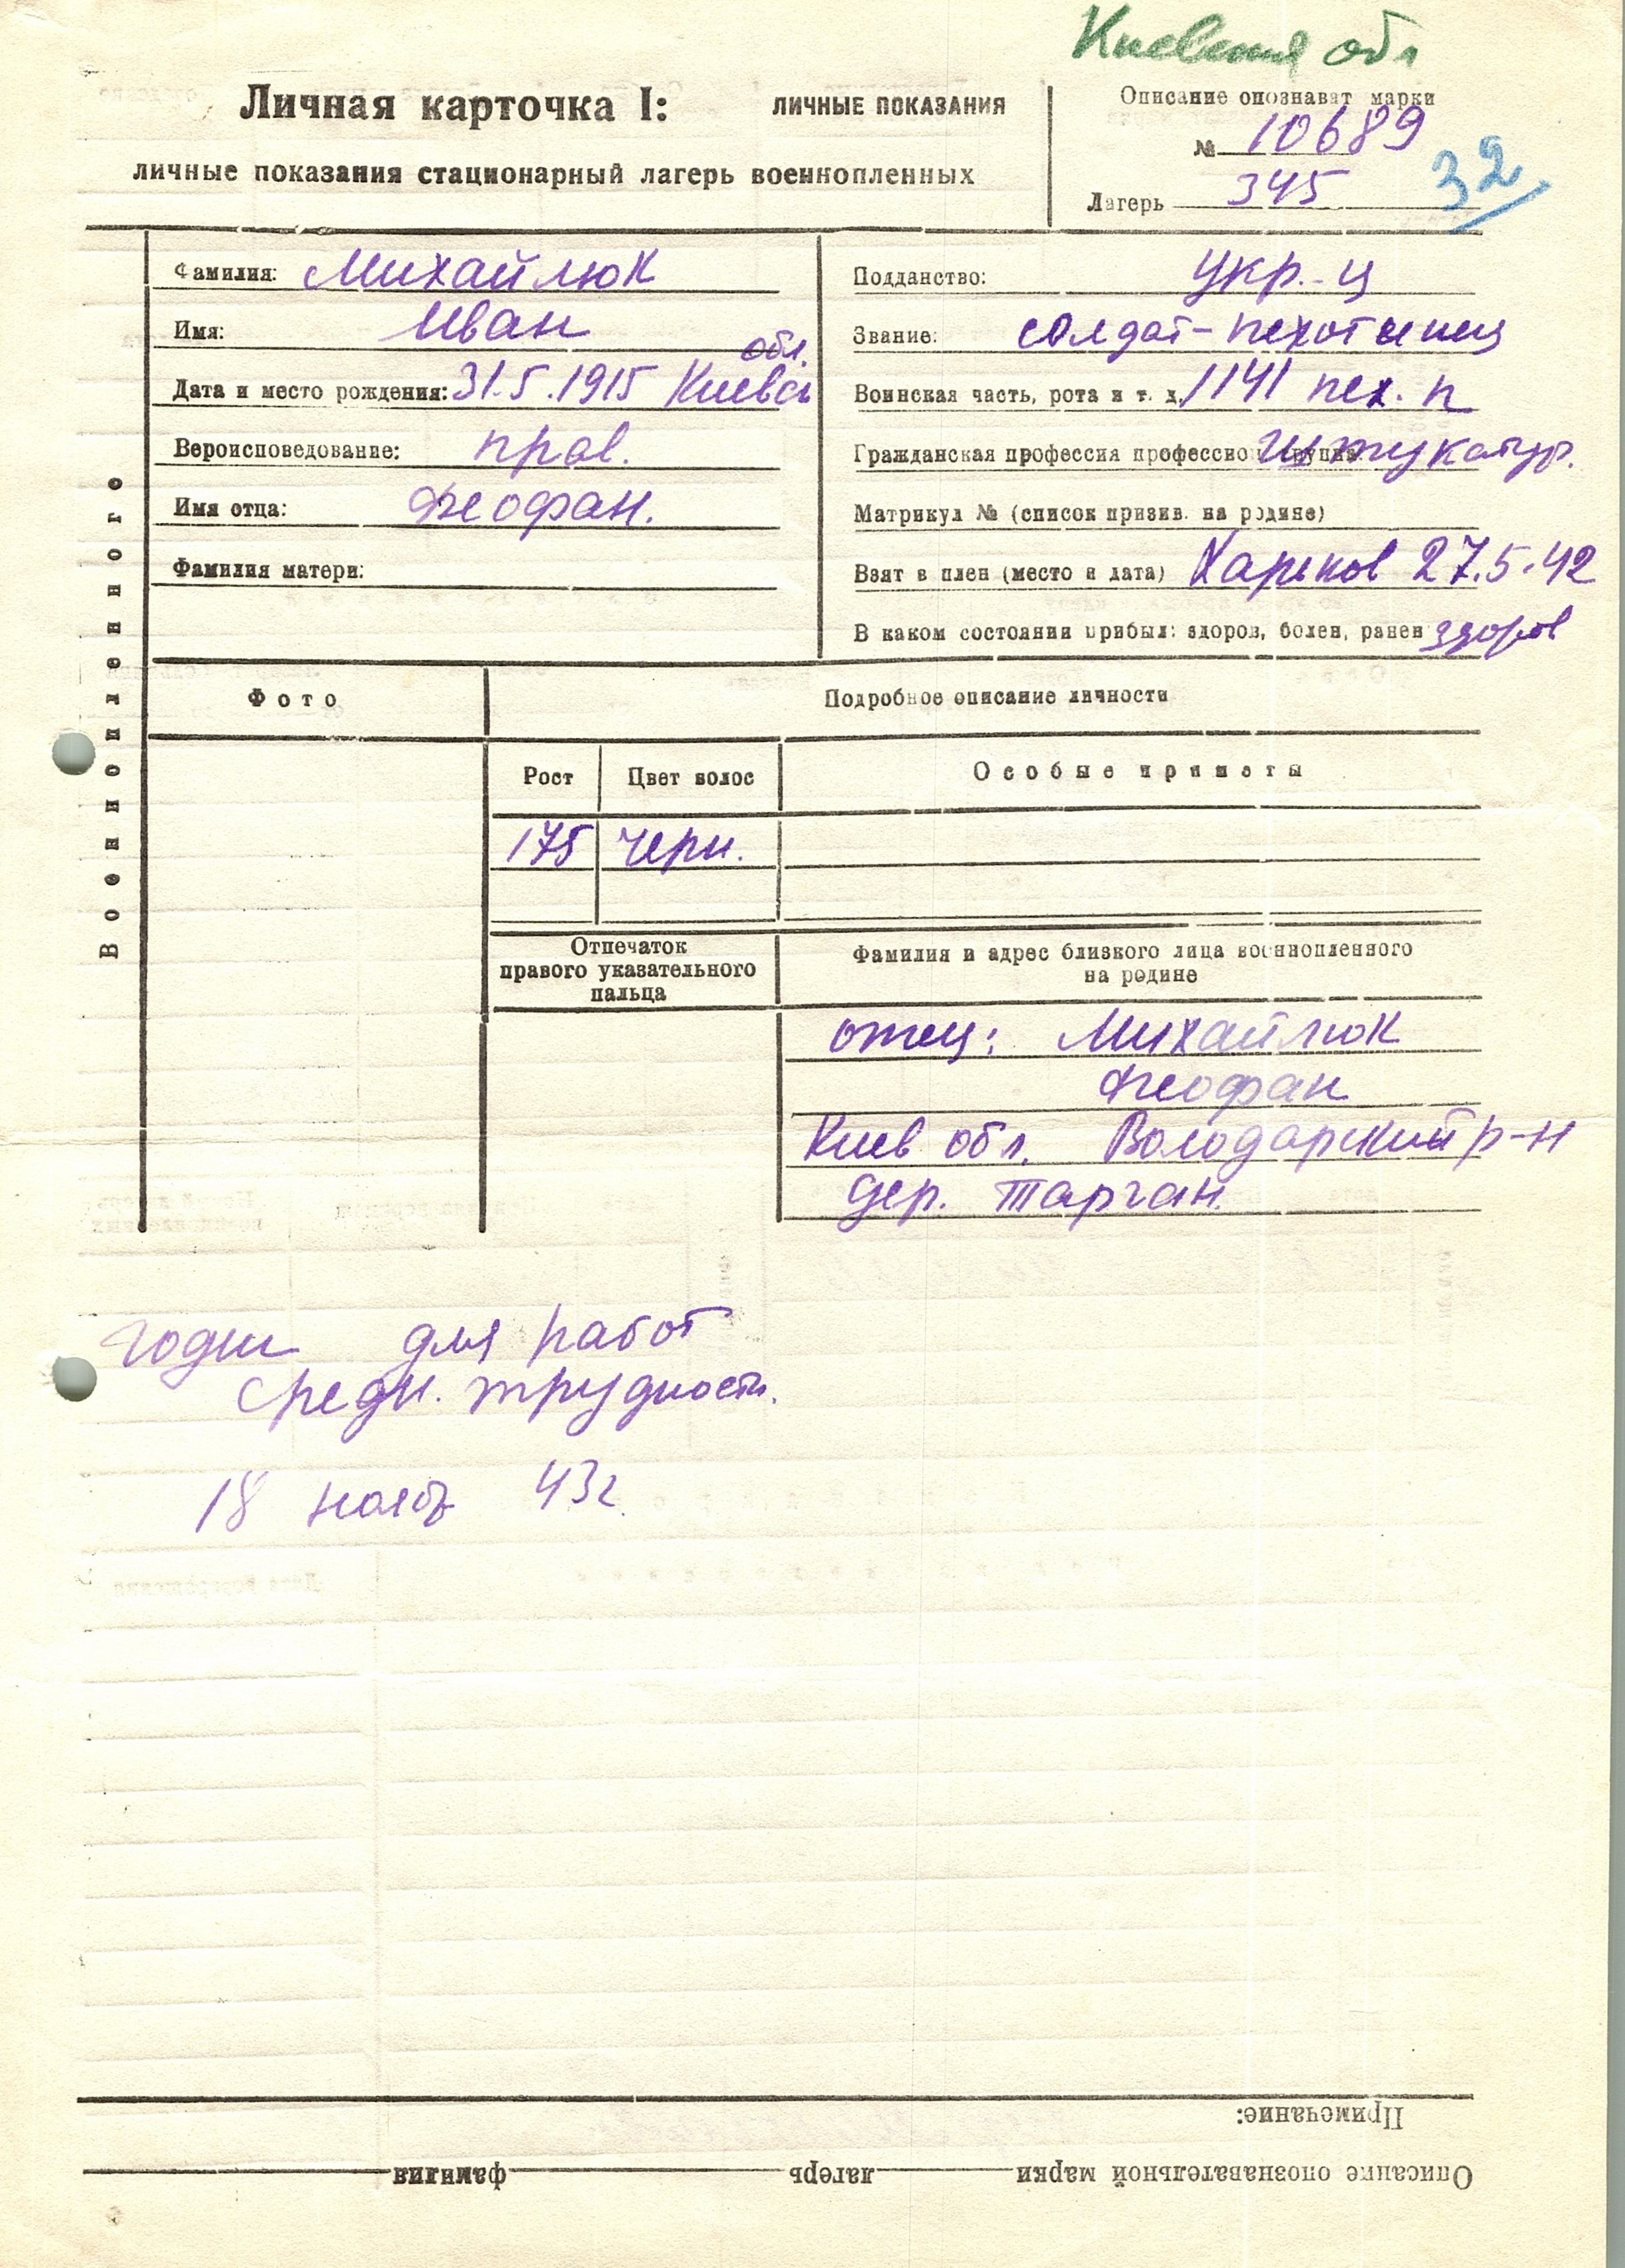 Киевская обл
Личная карточка I: ЛИЧНЫЕ ПОКАЗАНИЯ
личные показания стационарный лагерь военнопленных
Описание опознават марки
№ 10689
Лагерь 345
32
Военнопленного
Фамилия: Михайлюк
Имя: Иван
обл.
Дата и место рождения: 31.5.1915 Киевск
Вероисповедование: прав.
Имя отца: Феофан.
Фамилия матери:
Подданство: укр.-ц
Звание: солдат-пехотинец
Воинская часть, рота и т. д. 1141 пех. п
Гражданская профессия профессион группа штукатур.
Матрикул № (список призив. на родине)
Взят в плен (место и дата) Харьков 27.5.42
В каком состоянии прибыл: здоров, болен, ранен здоров
Фото
Подробное описание личности
Рост Цвет волос Особые приметы
175 черн.
Отпечаток
правого указательного
пальца
Фамилия и адрес близкого лица военнопленного
на родине
отец: Михайлюк
Феофан
Киев обл. Володарский р-н
дер. Тарган.
годен для работ
средн. трудности.
18 нояб 43г.
Примечание:
Описание опознавательной марки лагерь фамилия